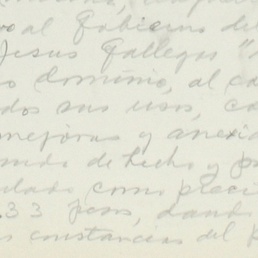 al Gobierno del
Jesus Gallegos "
dominio, al ca
dos sus usos, ca
mejoras y anexid
de hecho y
como preci
33 pesos, dando
constancias del